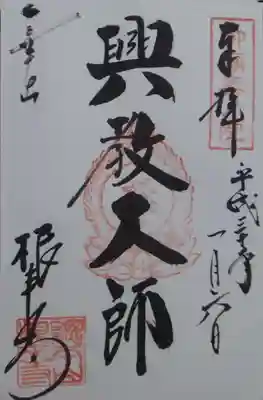 奉拝
平成三十年
一月六日
興教大師
一乗山
根来寺